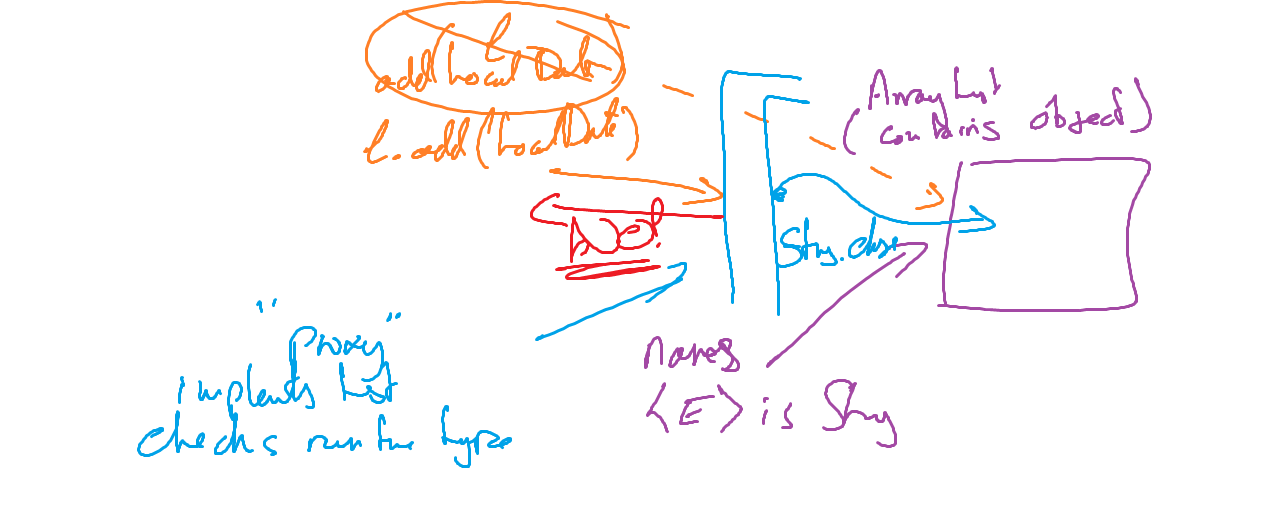 l
add(LocalDate
l.add(LocalDate)
ArrayList
(contains object)
NO!
String.class
"proxy"
implements List
checks runtime type
names
<E> is String